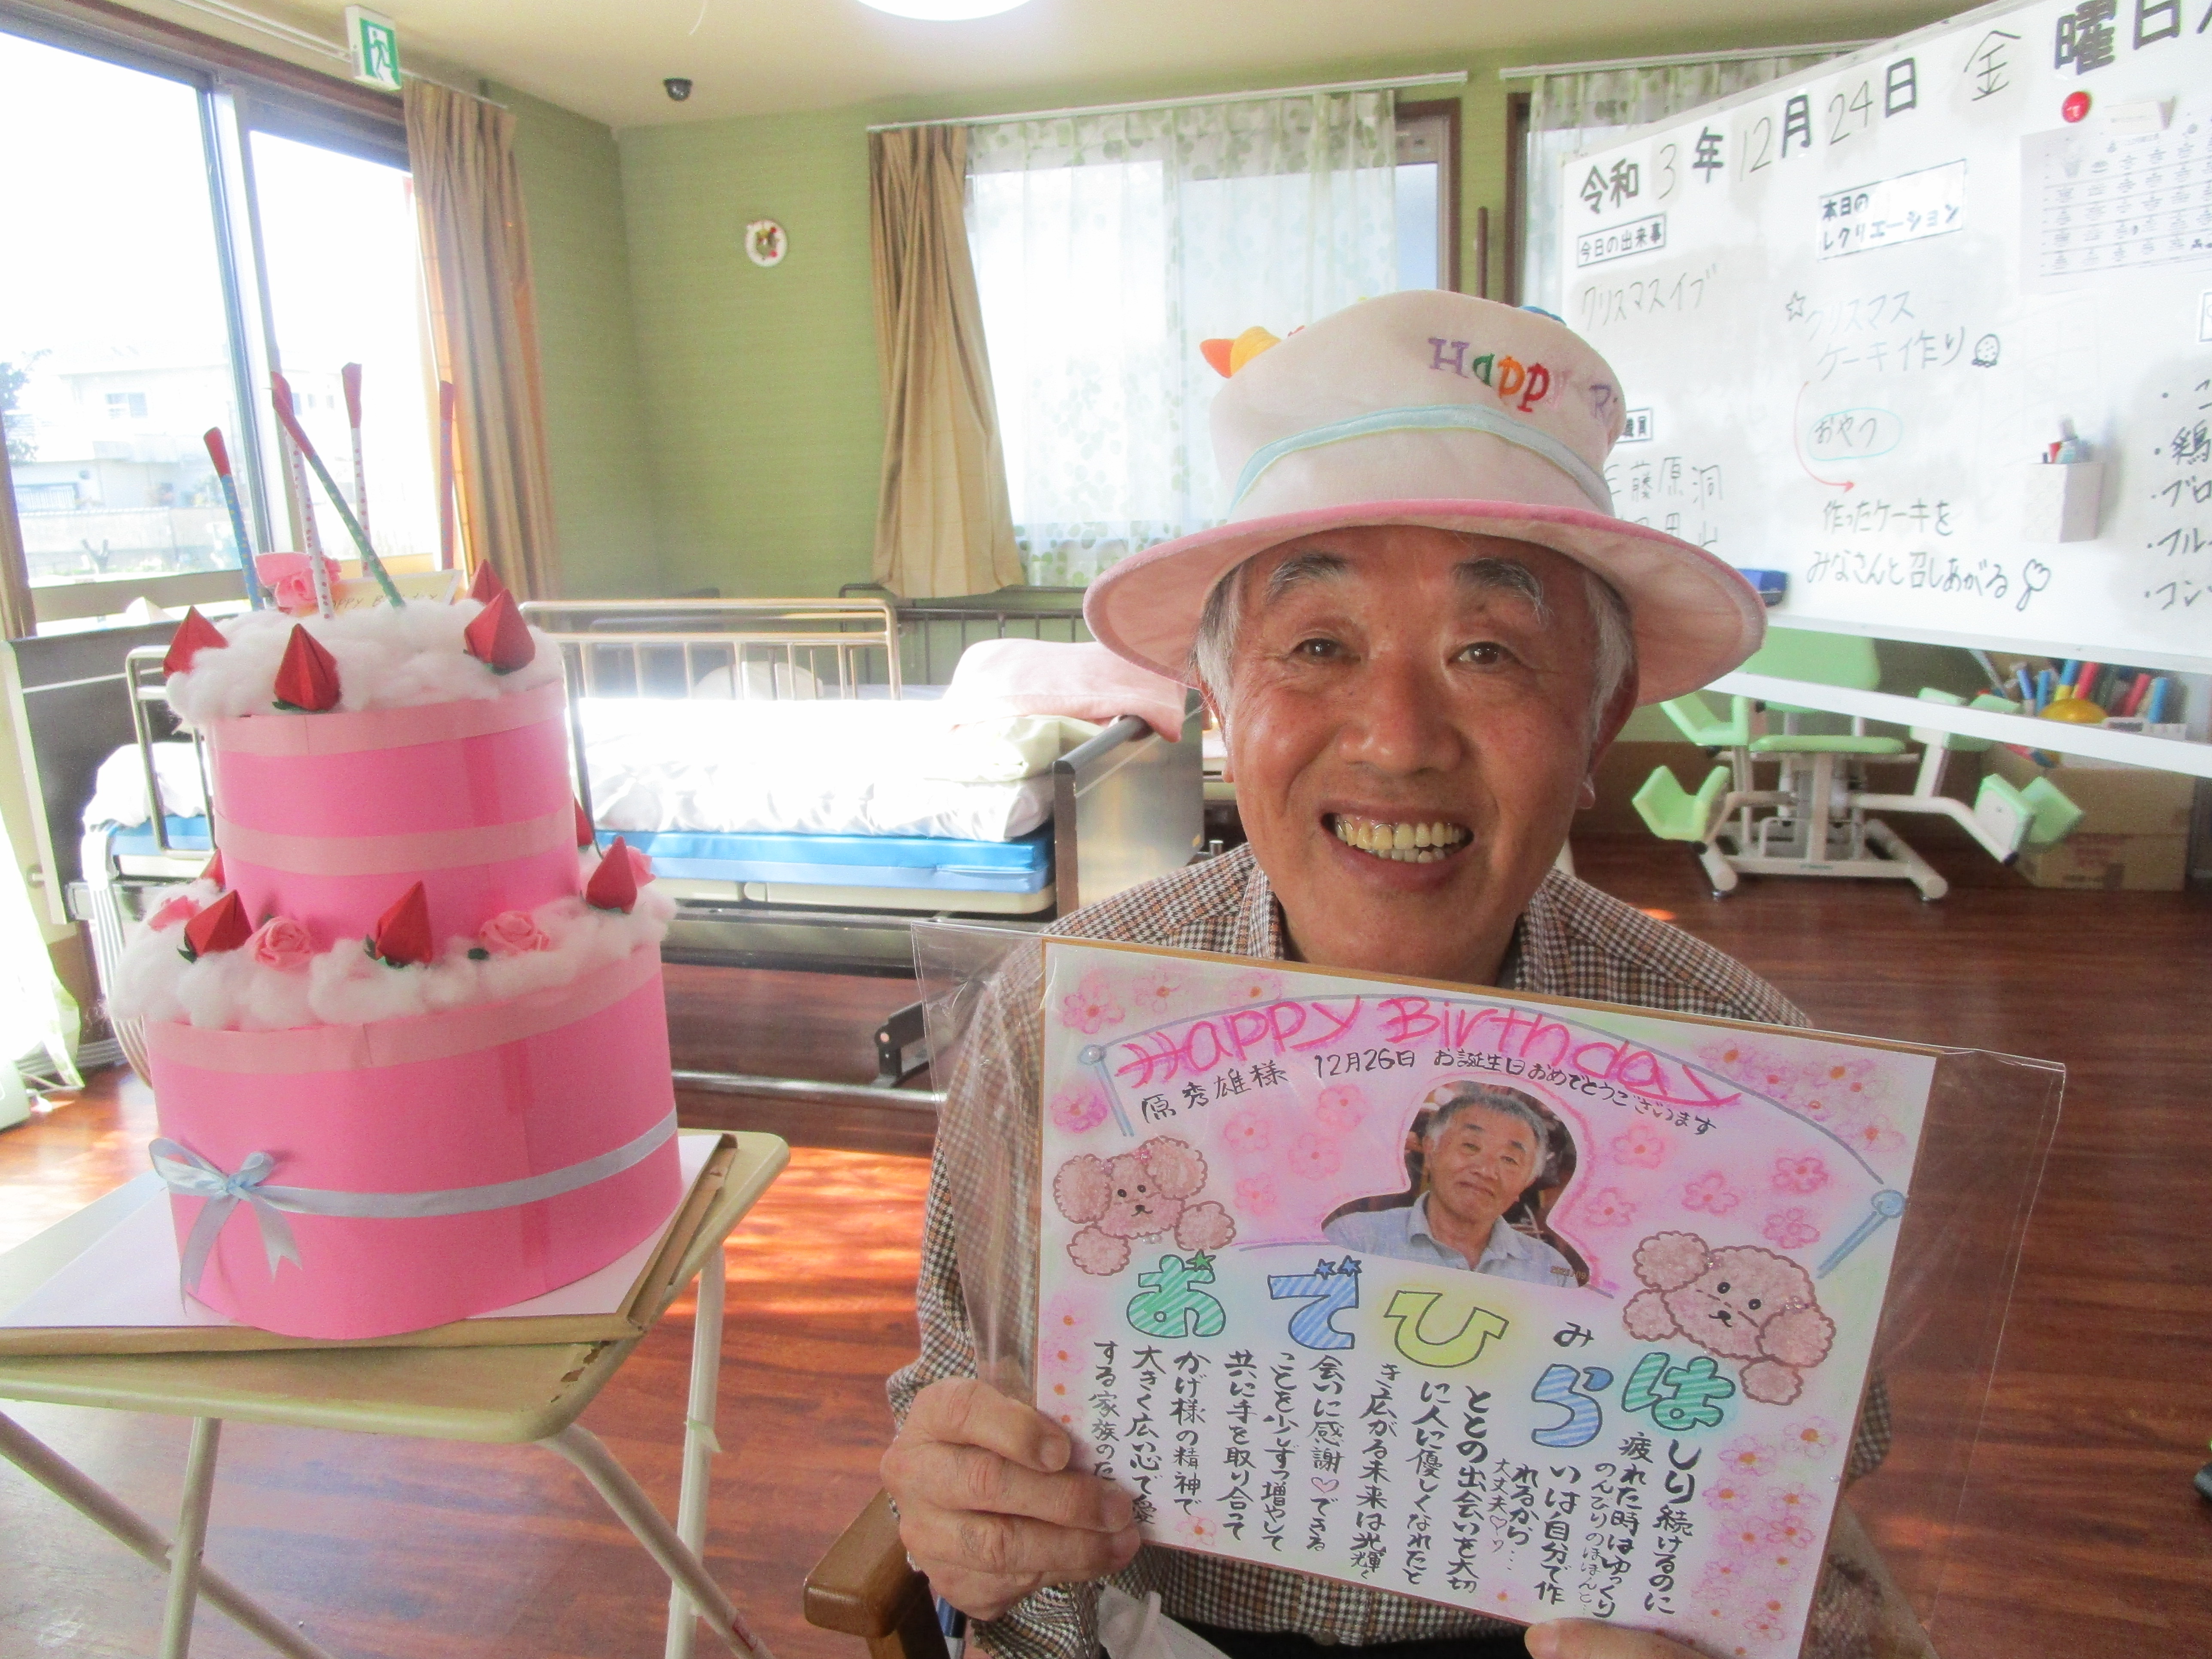 令和 3 年 12 月 24 日 金 曜日
今日の出来事
クリスマスイブ
本日の
レクリエーション
☆クリスマス
ケーキ作り
おやつ
作ったケーキを
みなさんと召しあがる
藤原 洞
Happy
Happy Birthday
原秀雄様 12月26日 お誕生日おめでとうございます
はらみ
ひでお
はしり続けるのに
疲れた時はゆっくり
のんびりのほほんと…
らいは自分で作
れるから…
大丈夫♡
ひとの出会いを大切
に人に優しくなれたと
き広がる未来は光輝く
会いに感謝♡できる
ことを少しずつ増やして
共に手を取り合って
おかげ様の精神で
大きく広い心で愛
する家族のた